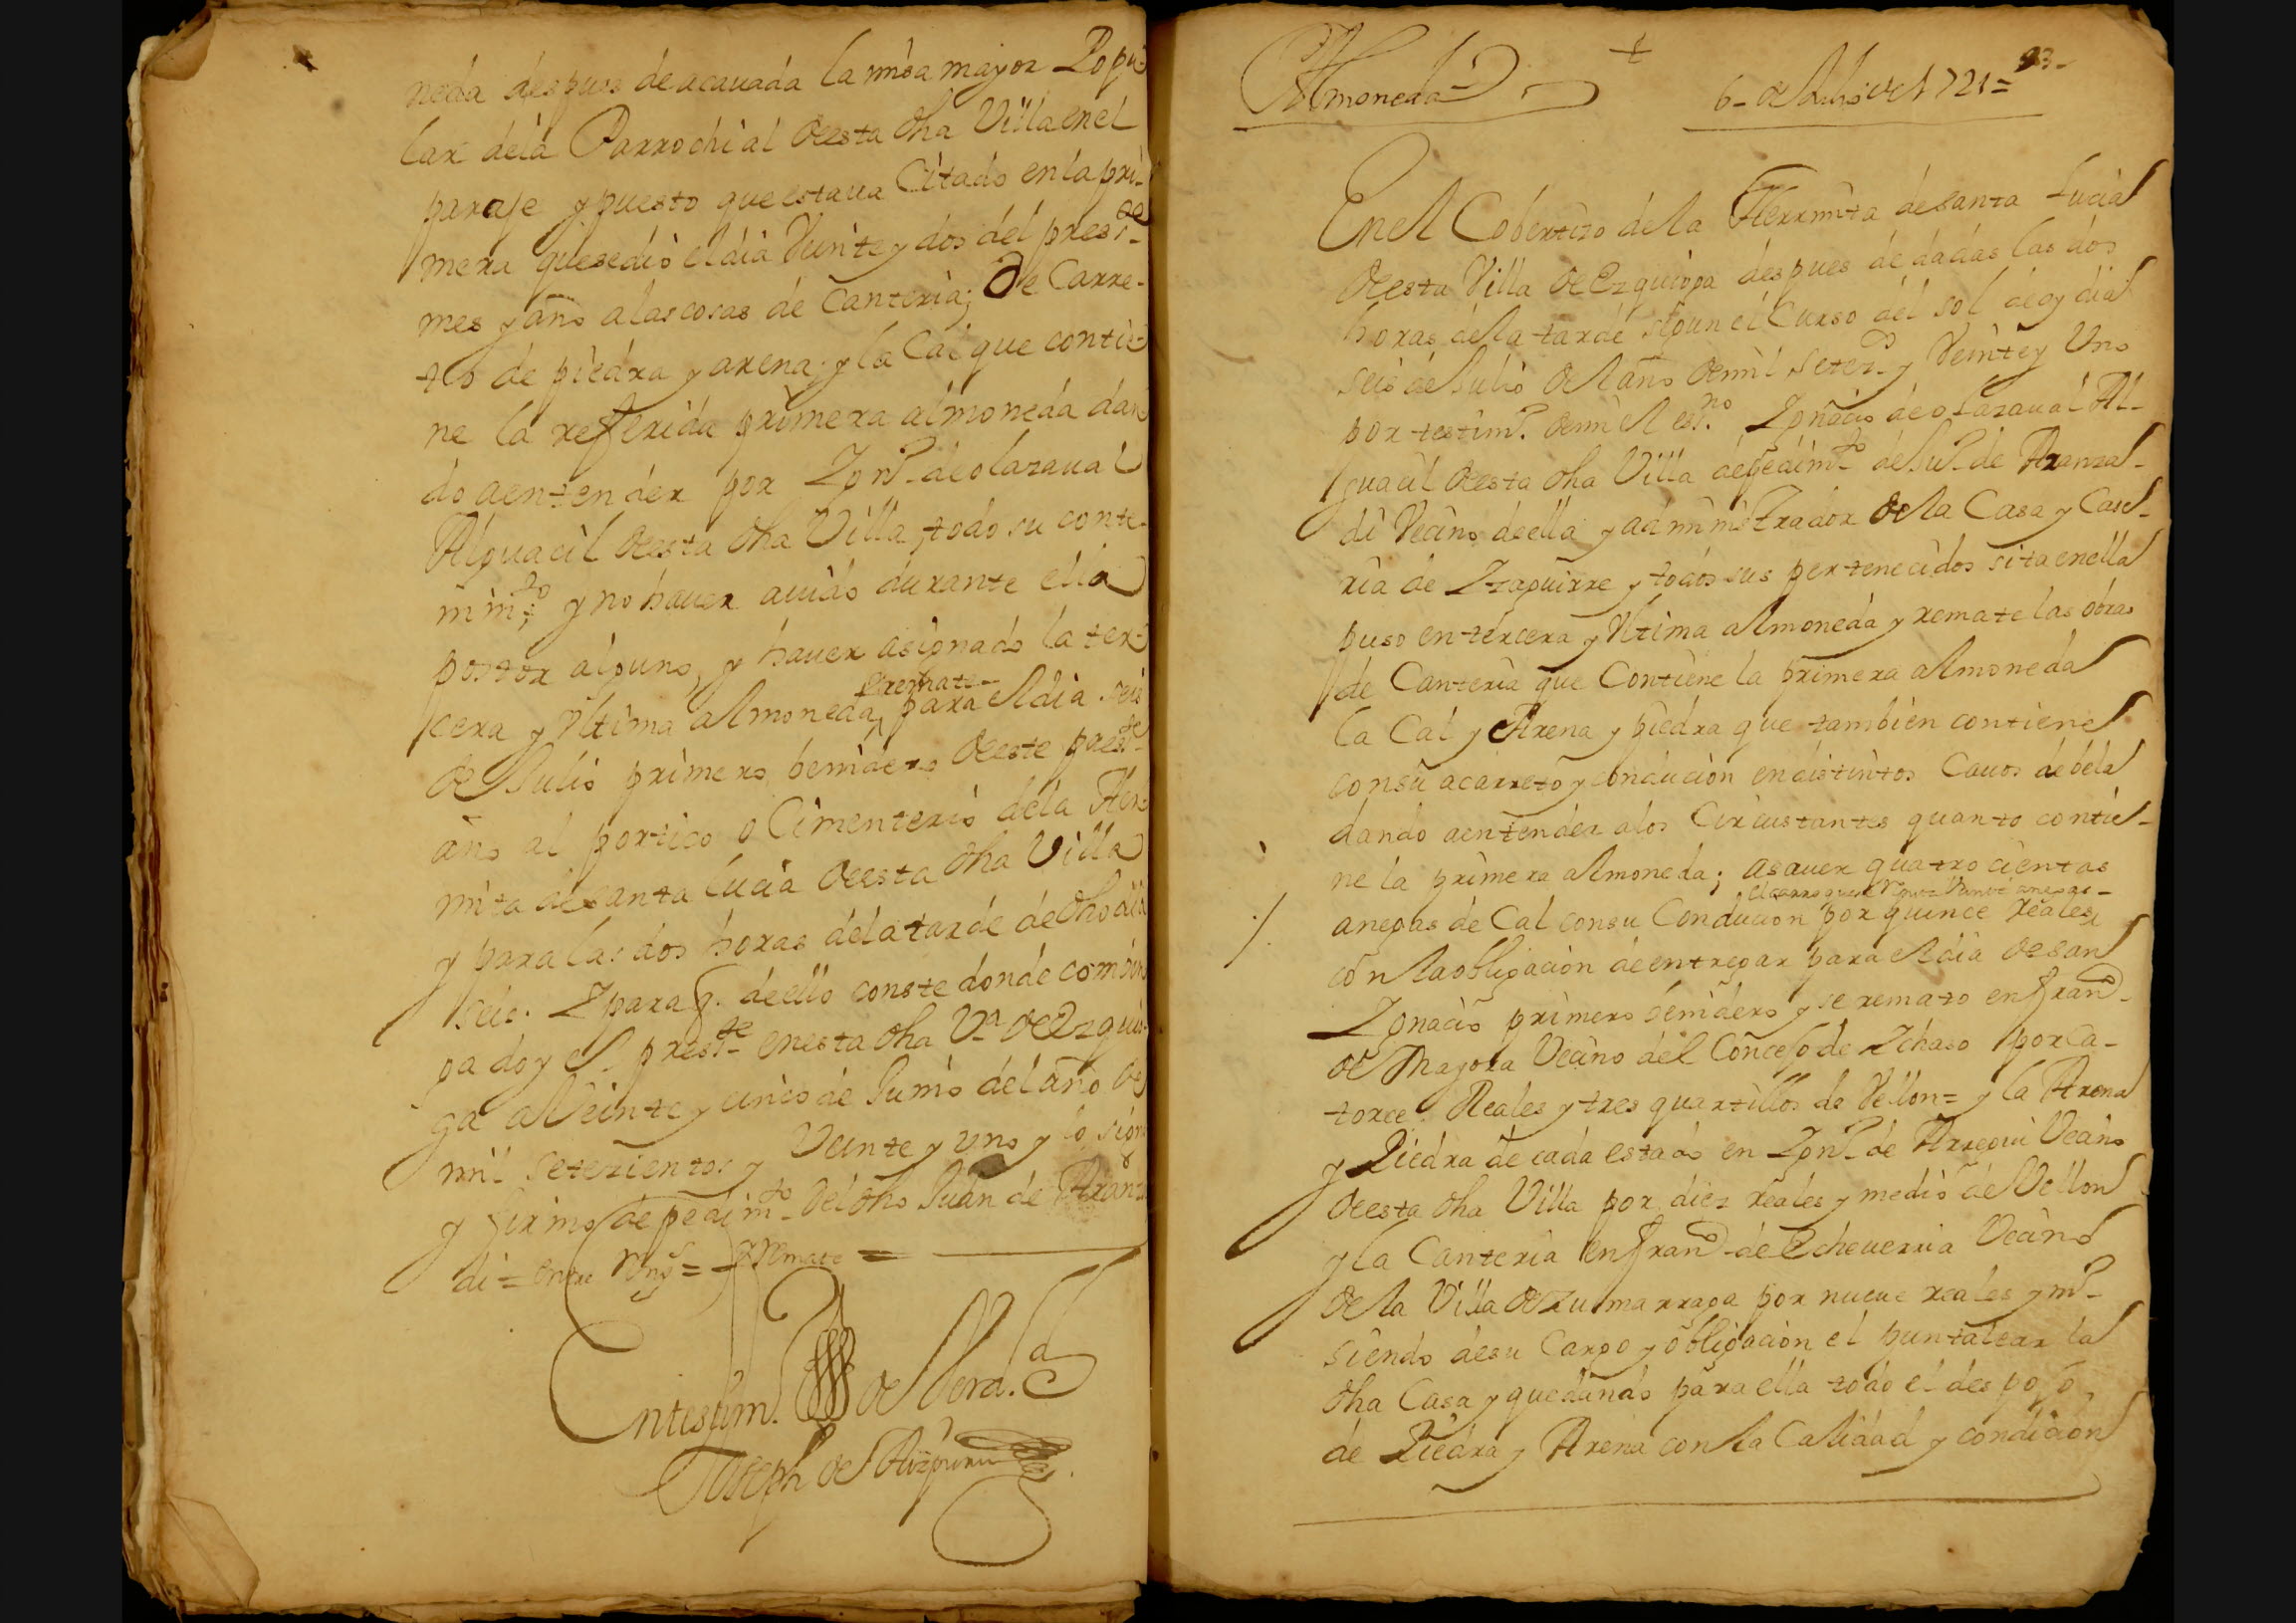 neda despues de acauada la missa mayor Popu
lar dela Parrochial deesta dha Villa enel
paraje y puesto que estaua Citado en la pri-
mera quesedio eldia Veinte y dos del pres.te
mes y año alascosas de Canteria; de Carre-
tto de piedra y arena; y la Cal que contie-
ne la refferida primera almoneda dan
do aentender por Ign.o de olazaual
Alguacil deesta dha Villa, todo su conte-
nim.to; y no hauer auido durante ella
postor alguno, y hauer asignado la ter-
cera y Vltima almoneda, para eldia seis
y remate
de Julio primero benidero deeste pres.te
año al portico o Cimenterio dela Her-
mita desanta lucia deesta dha Villa
y para las dos horas dela tarde de dho dia
seis. I para q. deello conste donde combin
ga doy el pres.te enesta dha V.a de Ezquio-
ga a Veinte y cinco de Junio del año de
mil setezientos y Veinte y uno y lo signe
y firme de pedim.to del dho Juan de Aranz
di = entre Rng.s = y remate =
Entestim.o de Verd.d
Joseph de Aizpuru
Almoneda
93-
6- de Julio de 1721=
Enel Cobertizo dela Herrmita de santa Lucia
deesta Villa de Ezquioga despues de dadas las dos
horas dela tarde segun el Curso del sol deoy dia
seis de Julio del año demil setez.os y Veinte y Uno
por testim.o demi el ess.no Ignacio de olazaual Al-
guacil deesta dha Villa depedim.to de Ju.o de Aranzal-
di Vecino deella y administrador de la Casa y Case-
ria de Izaguirre y todos sus pertenecidos sita enella
puso en tercera y Vltima almoneda y remate las obras
de Canteria que Contiene la primera almoneda
la Cal y Arena y piedra que tambien contiene
consu acarreto y conducion endistintos Cauos dedela
dando aentender alos Circustantes quanto contie-
ne la primera almoneda; asauer quatrocientas
anegas de Cal consu Conducion por quince reales
con laobligacion deentregar para eldia desan
Ignacio primero benidero y se remato en fran.co
de Mayora Vecino del Concejo de Ichaso por ca-
torce Reales y tres quartillos de Vellon = y la Arena
y Piedra de cada estado en Ign.o de Arregui Vecino
deesta dha Villa por diez reales y medio de Vellon
y la Canteria en fran.co de Echeuerria Vecino
dela Villa de Zumarraga por nueue reales y m.o
siendo desu Cargo y obligacion el puntalear la
dha Casa y quedando para ella todo el despojo
de Piedra y Arena con la Calidad y condicion